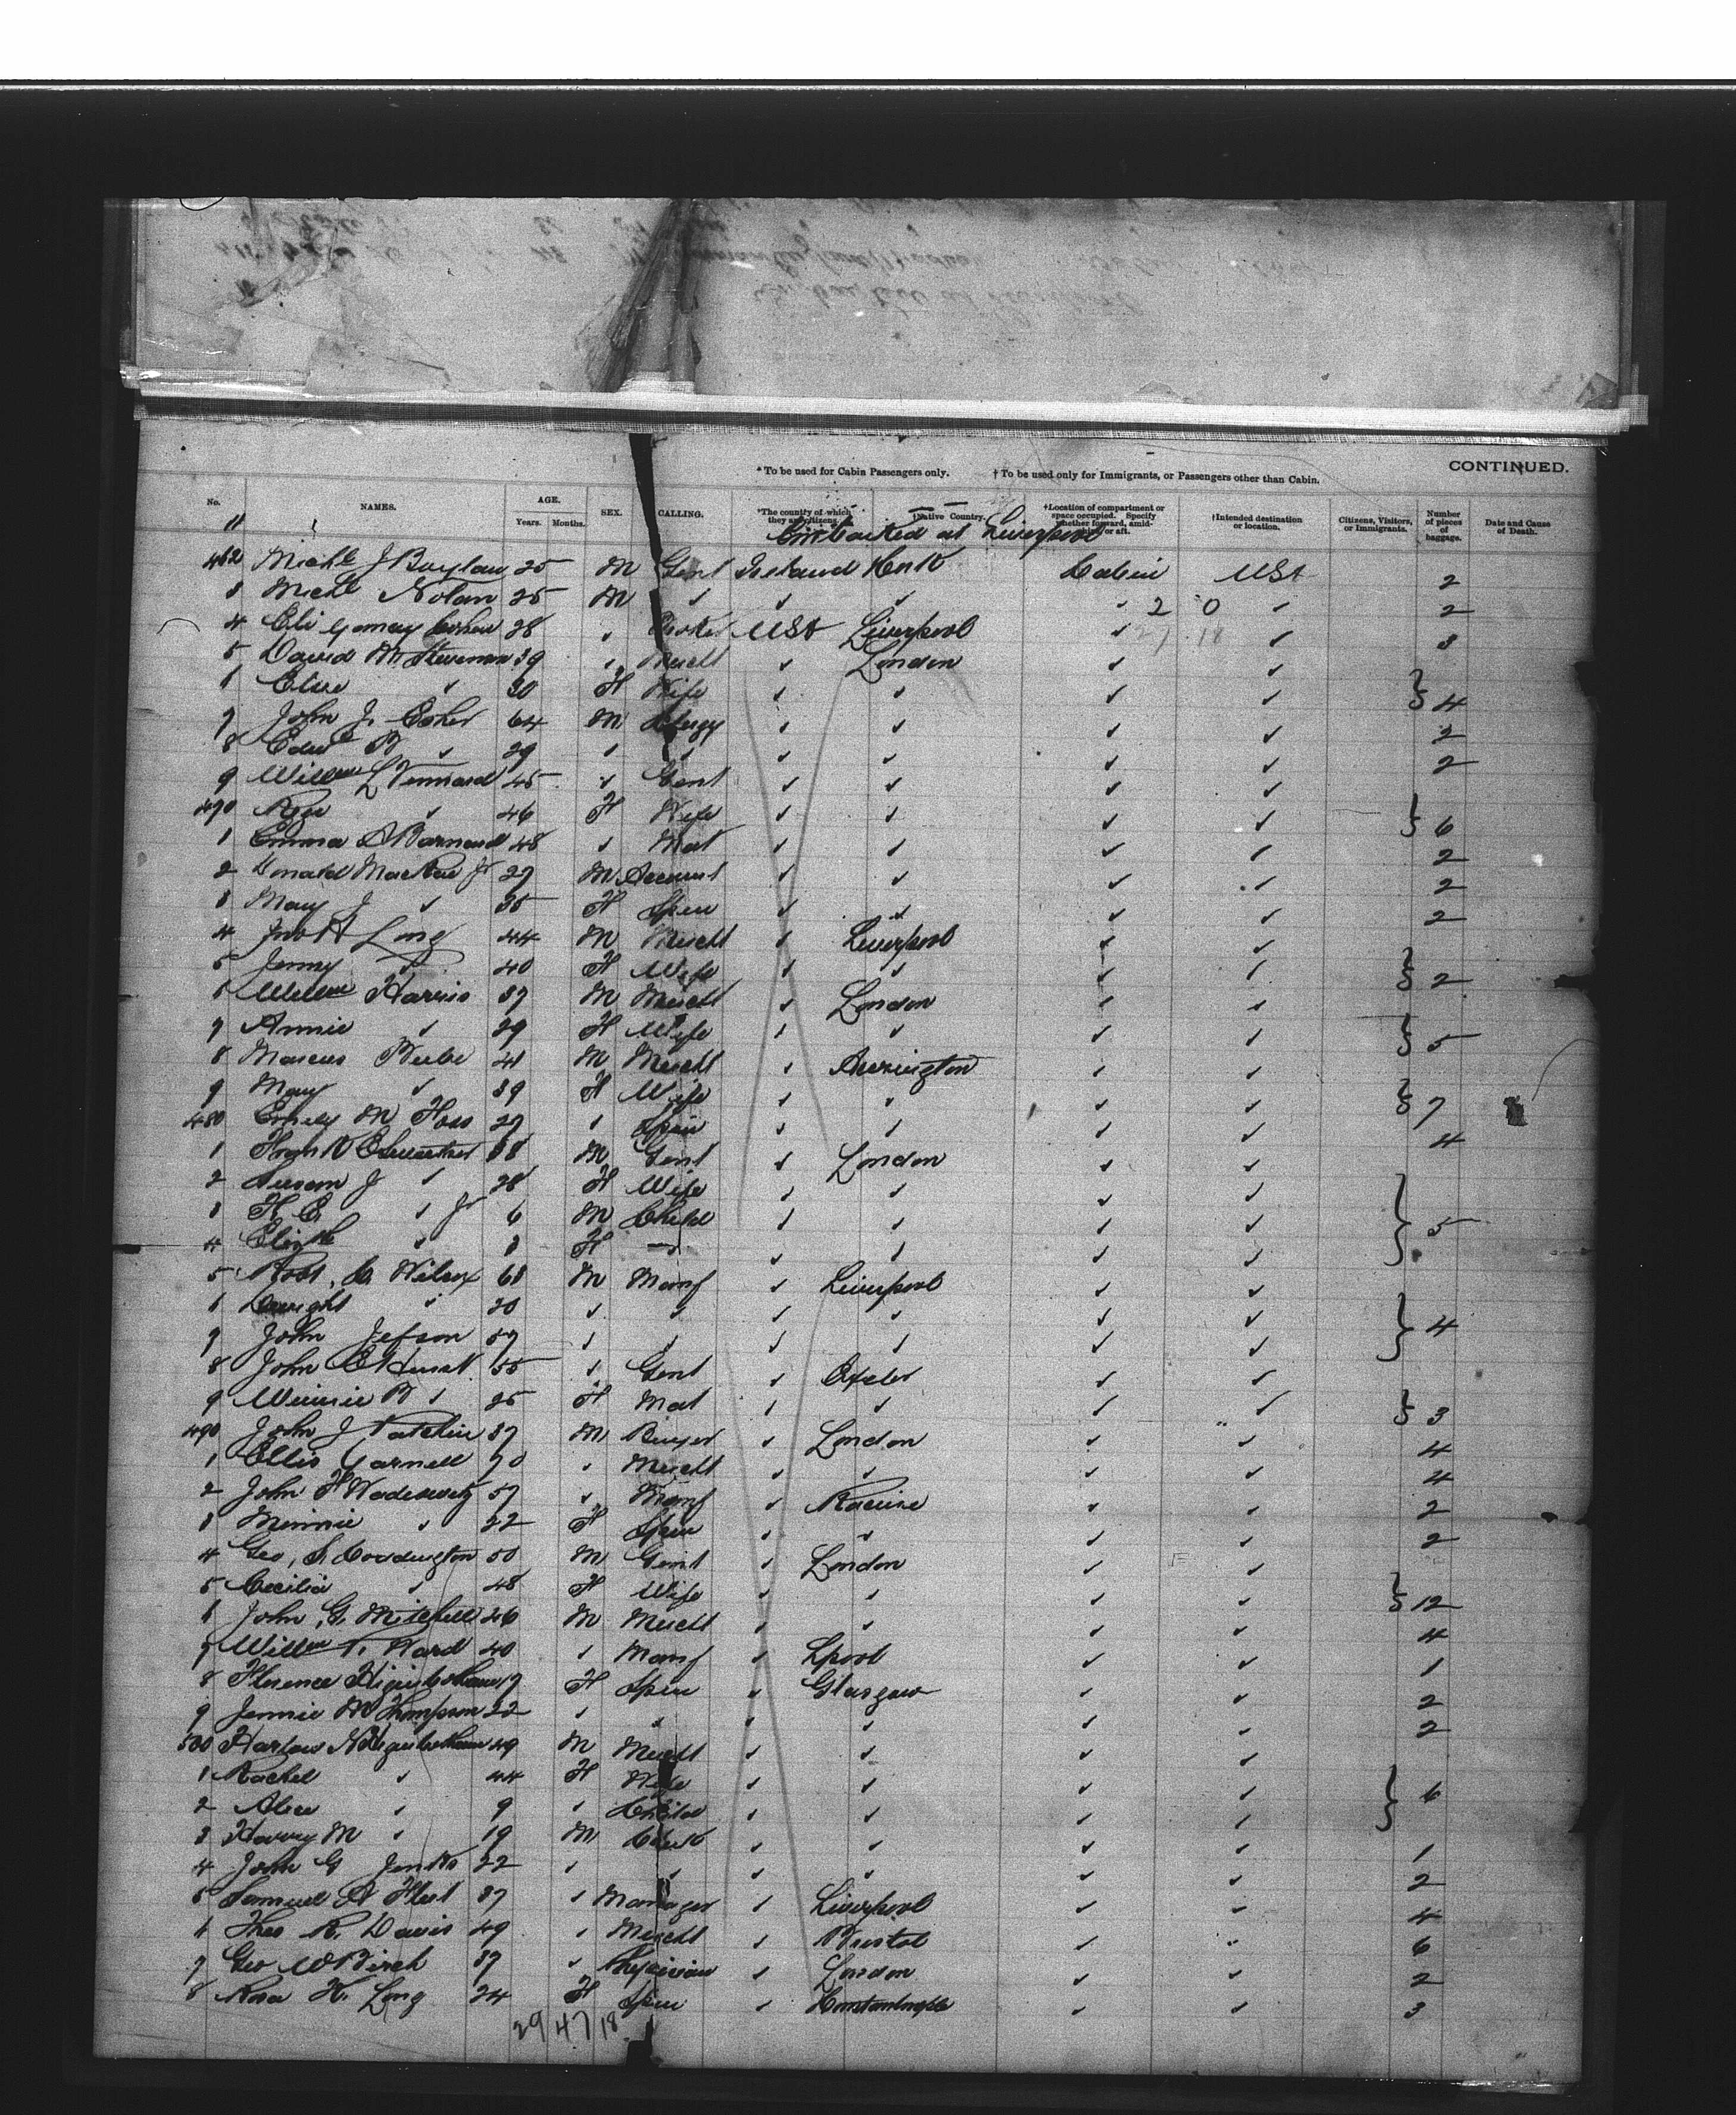 *To be used for Cabin Passengers only. †To be used only for Immigrants, or Passengers other than Cabin. CONTINUED.
No. NAMES. AGE. Years. Months. SEX. CALLING. *The country of which they are citizens. †Native Country. †Location of compartment or space occupied. Specify whether forward, amidships or aft. †Intended destination or location. Citizens, Visitors, or Immigrants. Number of pieces of baggage. Date and Cause of Death.
Embarked at Liverpool
462 Michl J Boylan 25 M Gent Ireland Cabin USA 2
3 Michl Nolan 25 M ✓ ✓ ✓ ✓ 2 0 ✓ 2
4 Eli 28 ✓ USA Liverpool ✓ ✓ 3
5 David M Stevenson 39 ✓ Mercht ✓ London ✓ ✓
6 Elsie ✓ 30 F Wife ✓ ✓ ✓ ✓ } 4
7 John J. Esher 64 M Clergy ✓ ✓ ✓ ✓ 2
8 Edwd B ✓ 29 ✓ ✓ ✓ ✓ ✓ ✓ 2
9 Willm L Vennard 45 ✓ Gent ✓ ✓ ✓ ✓
470 ✓ 46 F Wife ✓ ✓ ✓ ✓ } 6
1 Emma A Barnard 48 ✓ Mat ✓ ✓ ✓ ✓ 2
2 Donald MacRae Jr 27 M Account ✓ ✓ ✓ ✓ 2
3 Mary J ✓ 35 F Spin ✓ ✓ ✓ ✓ 2
4 Jno H Long 44 M Mercht ✓ Liverpool ✓ ✓
5 Jenny ✓ 40 F Wife ✓ ✓ ✓ ✓ } 2
6 Willm Harris 37 M Mercht ✓ London ✓ ✓
7 Annie ✓ 29 F Wife ✓ ✓ ✓ ✓ } 5
8 Marcus Beebe 41 M Mercht ✓ Accrington ✓ ✓
9 Mary ✓ 39 F Wife ✓ ✓ ✓ ✓ } 7
480 Emily M 27 ✓ Spin ✓ ✓ ✓ ✓ 4
1 Frank 38 M Gent ✓ London ✓ ✓
2 Susan J ✓ 28 F Wife ✓ ✓ ✓ ✓
3 F. E. ✓ Jr 6 M Child ✓ ✓ ✓ ✓ } 5
4 Elizth ✓ 3 F ✓ ✓ ✓ ✓
5 Robt. Wilcox 68 M Manf ✓ Liverpool ✓ ✓
6 Dwight ✓ 30 ✓ ✓ ✓ ✓ ✓ ✓ } 4
7 John Jefson 57 ✓ ✓ ✓ ✓ ✓ ✓
8 John E Hurst 55 ✓ Gent ✓ Exeter ✓ ✓
9 Winnie B ✓ 25 F Mat ✓ ✓ ✓ ✓ } 3
490 John J Patchin 37 M Buyer ✓ London ✓ ✓ 4
1 Ellis Yarnell 70 ✓ Mercht ✓ ✓ ✓ ✓ 4
2 John F Wadewitz 57 ✓ Manf ✓ Racine ✓ ✓ 2
3 Minnie ✓ 22 F Spin ✓ ✓ ✓ ✓ 2
4 Geo, S. Coddington 50 M Gent ✓ London ✓ ✓
5 Cecilia ✓ 48 F Wife ✓ ✓ ✓ ✓ } 12
6 John G. Mitchell 46 M Mercht ✓ ✓ ✓ ✓ 4
7 Willm T. Ward 40 ✓ Manf ✓ Lpool ✓ ✓ 1
8 Florence Higinbotham F Spin ✓ Glasgow ✓ ✓ 2
9 Jennie M Thompson 22 ✓ ✓ ✓ ✓ ✓ ✓ 2
500 Harlow N Higinbotham 49 M Mercht ✓ ✓ ✓ ✓
1 Rachel ✓ 44 F Wife ✓ ✓ ✓ ✓ } 6
2 Alice ✓ 9 ✓ Child ✓ ✓ ✓ ✓
3 Harry M ✓ 19 M Clerk ✓ ✓ ✓ ✓ 1
4 John G Jenks 22 ✓ ✓ ✓ ✓ ✓ ✓ 2
5 Samuel A 37 ✓ Manager ✓ Liverpool ✓ ✓ 4
6 Theo R. Davis 49 ✓ Mercht ✓ Bristol ✓ ✓ 6
7 Geo W Birch 37 ✓ Physician ✓ London ✓ ✓ 2
8 Rosa H. Long 24 F Spin ✓ Constantinople ✓ ✓ 3
29 47 18